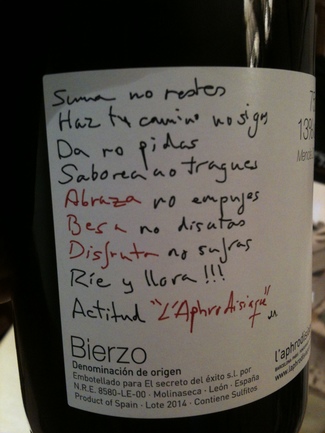 Suma no restes
Haz tu camino no sigas
Da no pidas
Saborea no tragues
Abraza no empujes
Besa no discutas
Disfruta no sufras
Ríe y llora!!!
Actitud "L'Aphrodisiaque"
Bierzo
Denominación de origen
Embotellado para El secreto del éxito s.l. por
N.R.E. 8580-LE-00 - Molinaseca - León - España
Product of Spain - Lote 2014 - Contiene Sulfitos
75
13%
l'aphrodis
www.laphrod